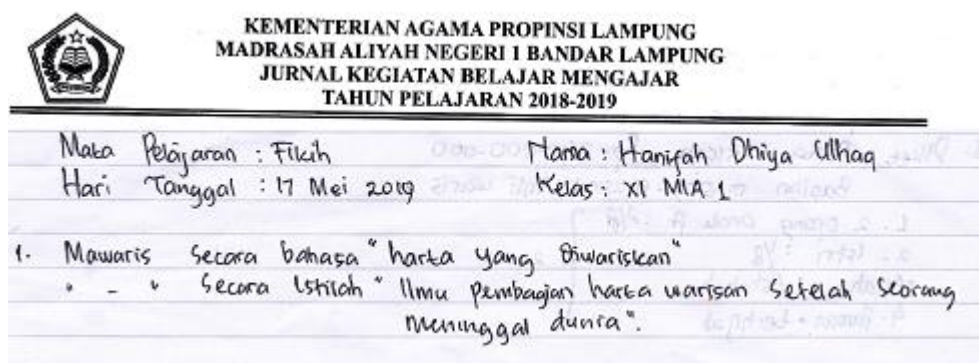 KEMENTERIAN AGAMA PROPINSI LAMPUNG
MADRASAH ALIYAH NEGERI 1 BANDAR LAMPUNG
JURNAL KEGIATAN BELAJAR MENGAJAR
TAHUN PELAJARAN 2018-2019
Mata Pelajaran : Fikih Nama : Hanifah Dhiya Ulhaq
Hari Tanggal : 17 Mei 2019 Kelas : XI MIA 1
1. Mawaris secara bahasa "harta yang diwariskan"
" - " secara Istilah "Ilmu pembagian harta warisan setelah seorang
meninggal dunia".